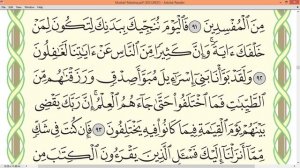 Mushaf Madinah.pdf (SECURED) - Adobe Reader
مِنَ ٱلْمُفْسِدِينَ ٩١ فَٱلْيَوْمَ نُنَجِّيكَ بِبَدَنِكَ لِتَكُونَ لِمَنْ
خَلْفَكَ ءَايَةً ۚ وَإِنَّ كَثِيرًا مِّنَ ٱلنَّاسِ عَنْ ءَايَٰتِنَا لَغَٰفِلُونَ
٩٢ وَلَقَدْ بَوَّأْنَا بَنِىٓ إِسْرَٰٓءِيلَ مُبَوَّأَ صِدْقٍ وَرَزَقْنَٰهُم مِّنَ
ٱلطَّيِّبَٰتِ فَمَا ٱخْتَلَفُوا۟ حَتَّىٰ جَآءَهُمُ ٱلْعِلْمُ ۚ إِنَّ رَبَّكَ يَقْضِى
بَيْنَهُمْ يَوْمَ ٱلْقِيَٰمَةِ فِيمَا كَانُوا۟ فِيهِ يَخْتَلِفُونَ ٩٣ فَإِن كُنتَ فِى شَكٍّ
مِّمَّآ أَنزَلْنَآ إِلَيْكَ فَسْـَٔلِ ٱلَّذِينَ يَقْرَءُونَ ٱلْكِتَٰبَ مِن